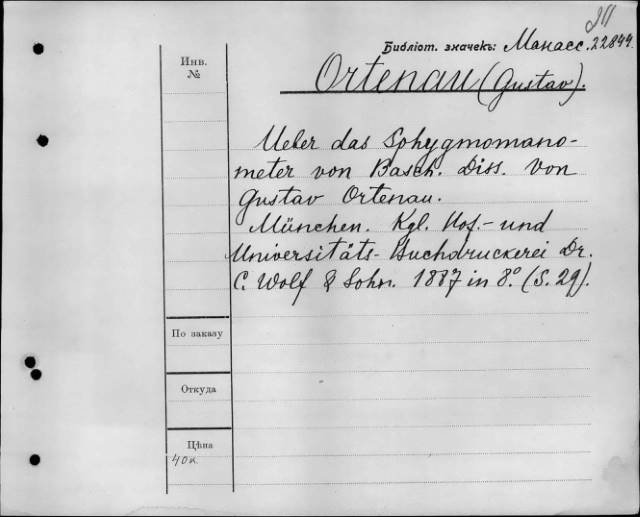 Библіот. значекъ: Манасс. 22844.
Инв. №
Ortenau (Gustav).
Ueber das Sphygmomano-
meter von Basch. Diss. von
Gustav Ortenau.
München. Kgl. Hof- und
Universitäts-Buchdruckerei Dr.
C. Wolf & Sohn. 1887 in 8° (S. 29).
По заказу
Откуда
Цѣна
40 к.